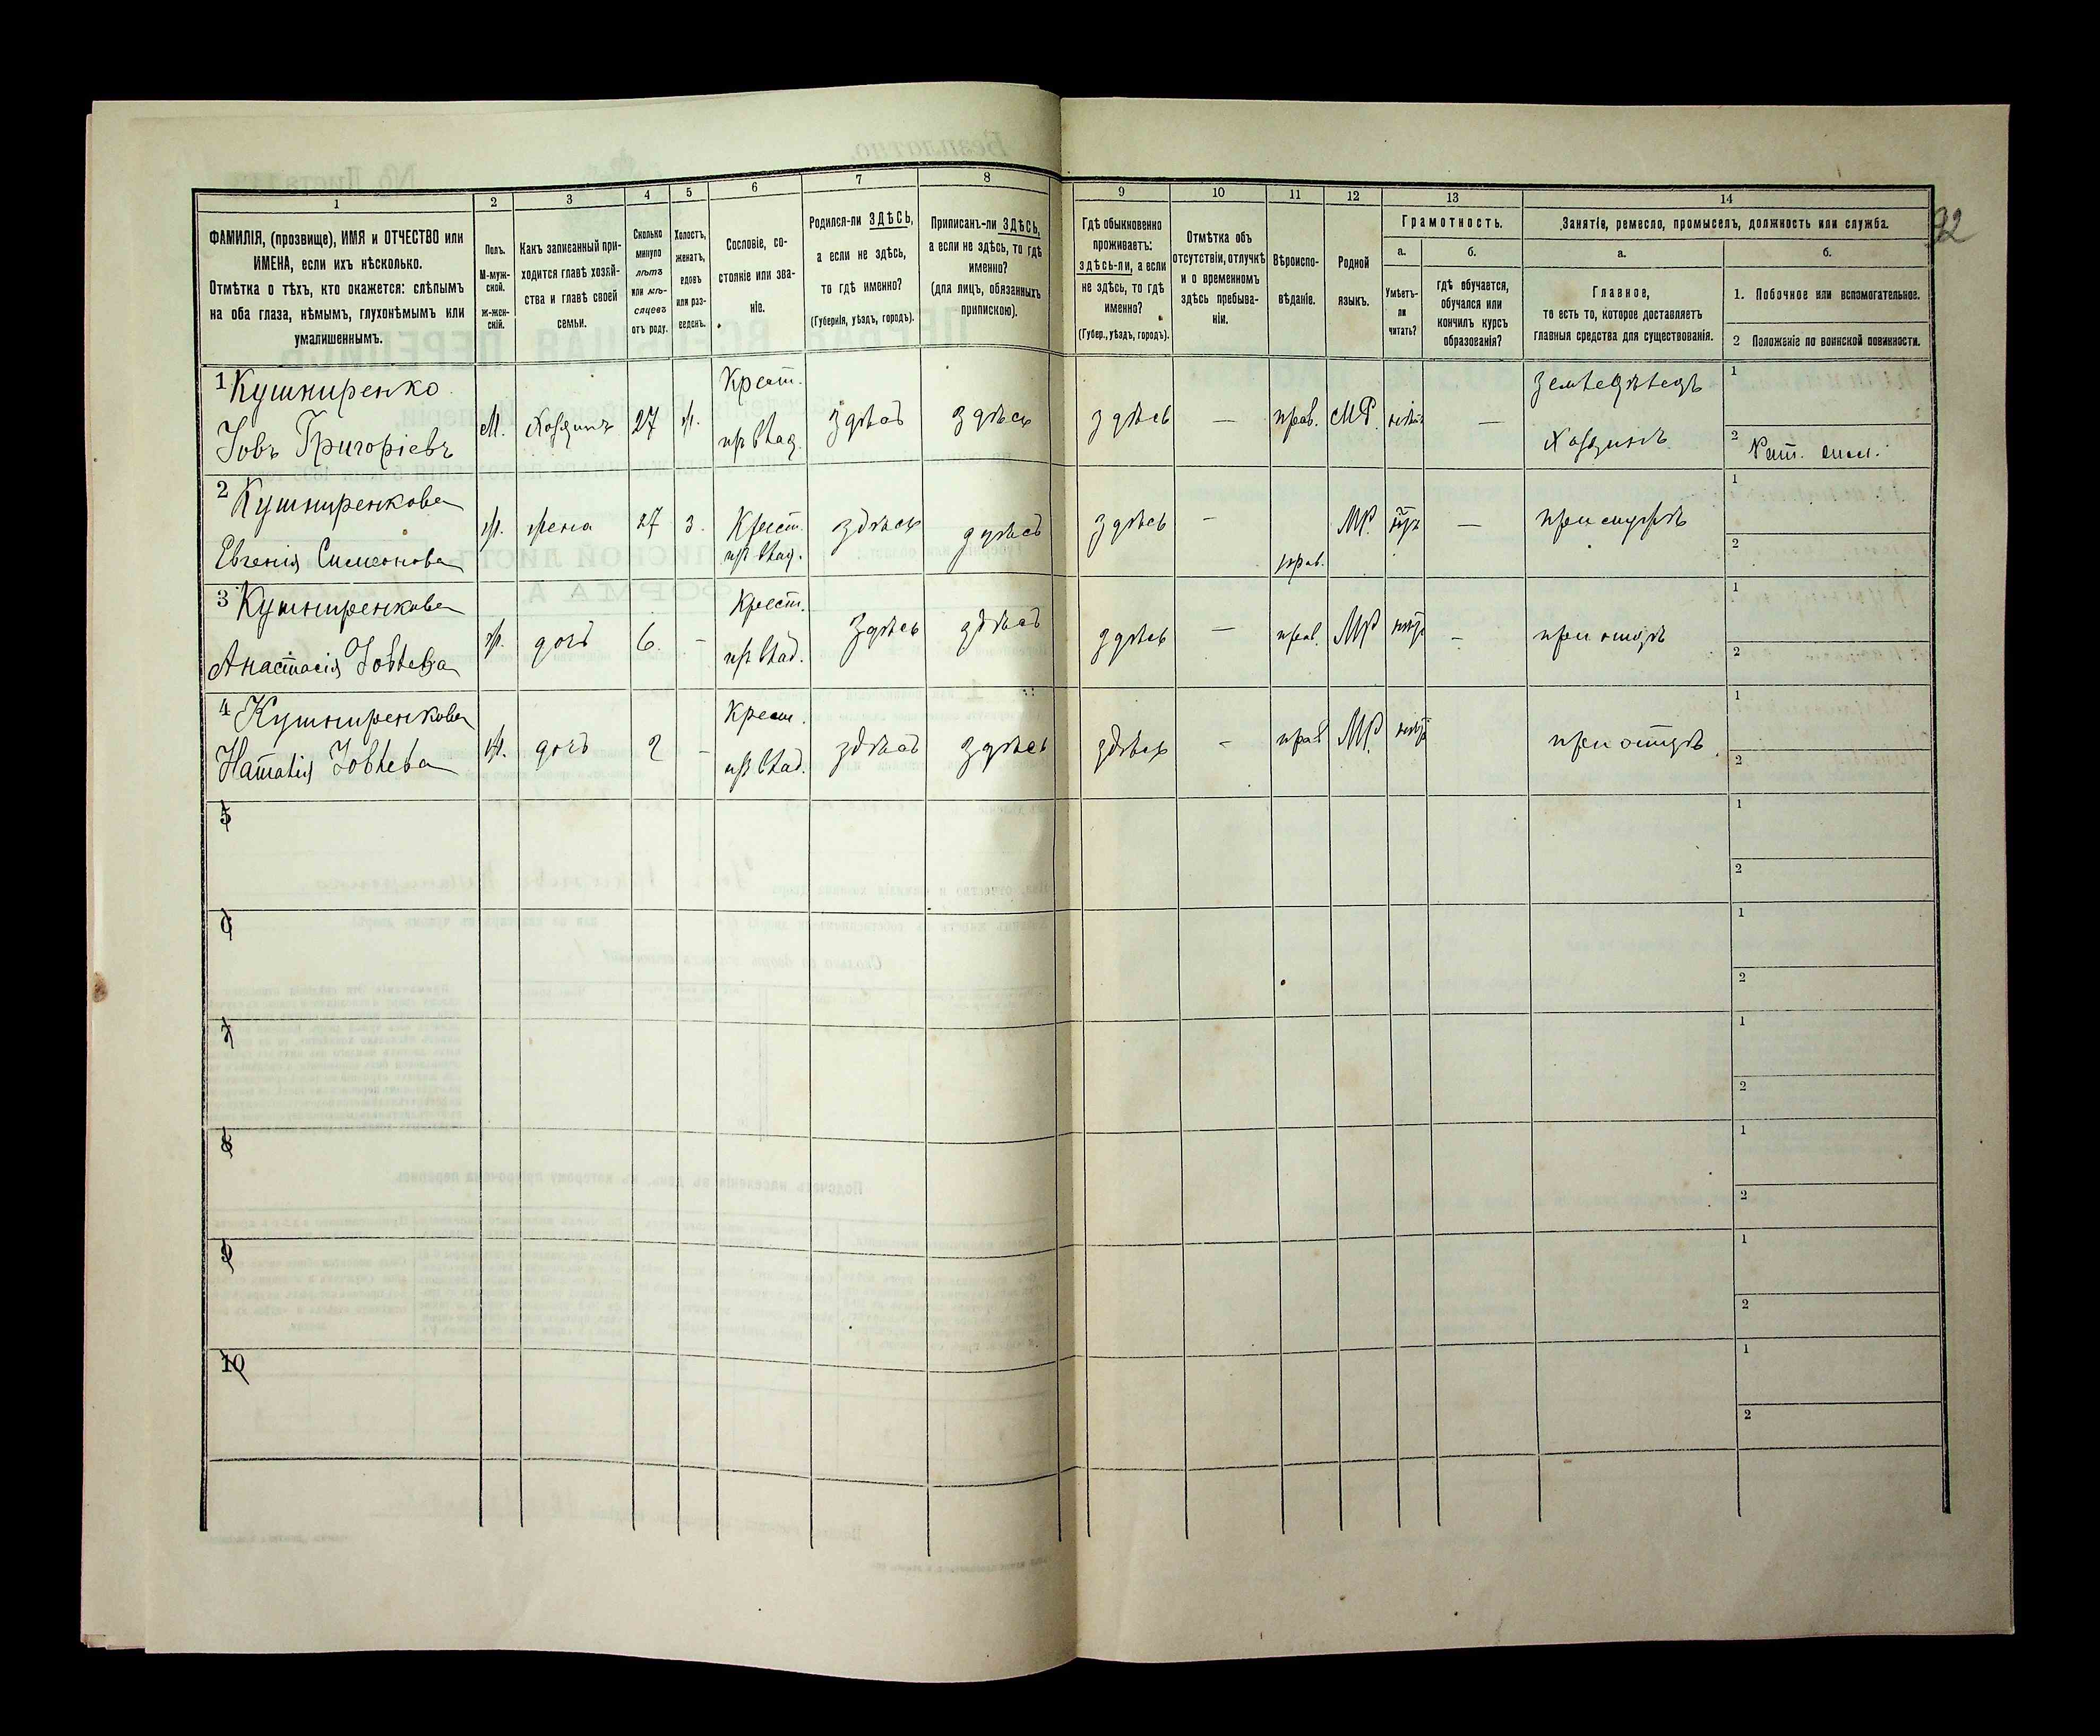 32
1
2
3
4
5
6
7
8
9
10
11
12
13
14
ФАМИЛІЯ, (прозвище), ИМЯ и ОТЧЕСТВО или
ИМЕНА, если ихъ нѣсколько.
Отмѣтка о тѣхъ, кто окажется: слѣпымъ
на оба глаза, нѣмымъ, глухонѣмымъ или
умалишеннымъ.
Полъ.
М-муж-
ской.
Ж-жен-
скій.
Какъ записанный при-
ходится главѣ хозяй-
ства и главѣ своей
семьи.
Сколько
минуло
лѣтъ
или мѣ-
сяцевъ
отъ роду.
Холостъ,
женатъ,
вдовъ
или раз-
веденъ.
Сословіе, со-
стояніе или зва-
ніе.
Родился-ли ЗДѢСЬ,
а если не здѣсь,
то гдѣ именно?
(Губернія, уѣздъ, городъ).
Приписанъ-ли ЗДѢСЬ,
а если не здѣсь, то гдѣ
именно?
(для лицъ, обязанныхъ
припискою).
Гдѣ обыкновенно
проживаетъ:
здѣсь-ли, а если
не здѣсь, то гдѣ
именно?
(Губер., уѣздъ, городъ).
Отмѣтка объ
отсутствіи, отлучкѣ
и о временномъ
здѣсь пребыва-
ніи.
Вѣроиспо-
вѣданіе.
Родной
языкъ.
Грамотность.
а.
б.
Умѣетъ-
ли
читать?
гдѣ обучается,
обучался или
кончилъ курсъ
образованія?
Занятіе, ремесло, промыселъ, должность или служба.
а.
б.
Главное,
то есть то, которое доставляетъ
главныя средства для существованія.
1. Побочное или вспомогательное.
2 Положеніе по воинской повинности.
1 Кушниренко
Іовъ Григоріевъ
М. Хозяинъ 27 ж. Крест. здѣсь здѣсь здѣсь — прав. МР. — Земледѣлецъ 1
пр влад. Хозяинъ 2 Рат.
2 Кушниренкова
Евгенія Симеонова
ж. жена 27 з. Крест. здѣсь здѣсь здѣсь — прав. МР. нѣтъ — при мужѣ 1
пр влад. 2
3 Кушниренкова
Анастасія Іовлева
ж. дочь 6. — Крест. здѣсь здѣсь здѣсь — прав. МР нѣтъ — при отцѣ 1
пр влад. 2
4 Кушниренкова
Наталія Іовлева
ж. дочь 2 — Крест. здѣсь здѣсь здѣсь — прав МР. нѣтъ при отцѣ. 1
пр влад. 2
5 1
2
6 1
2
7 1
2
8 1
2
9 1
2
10 1
2